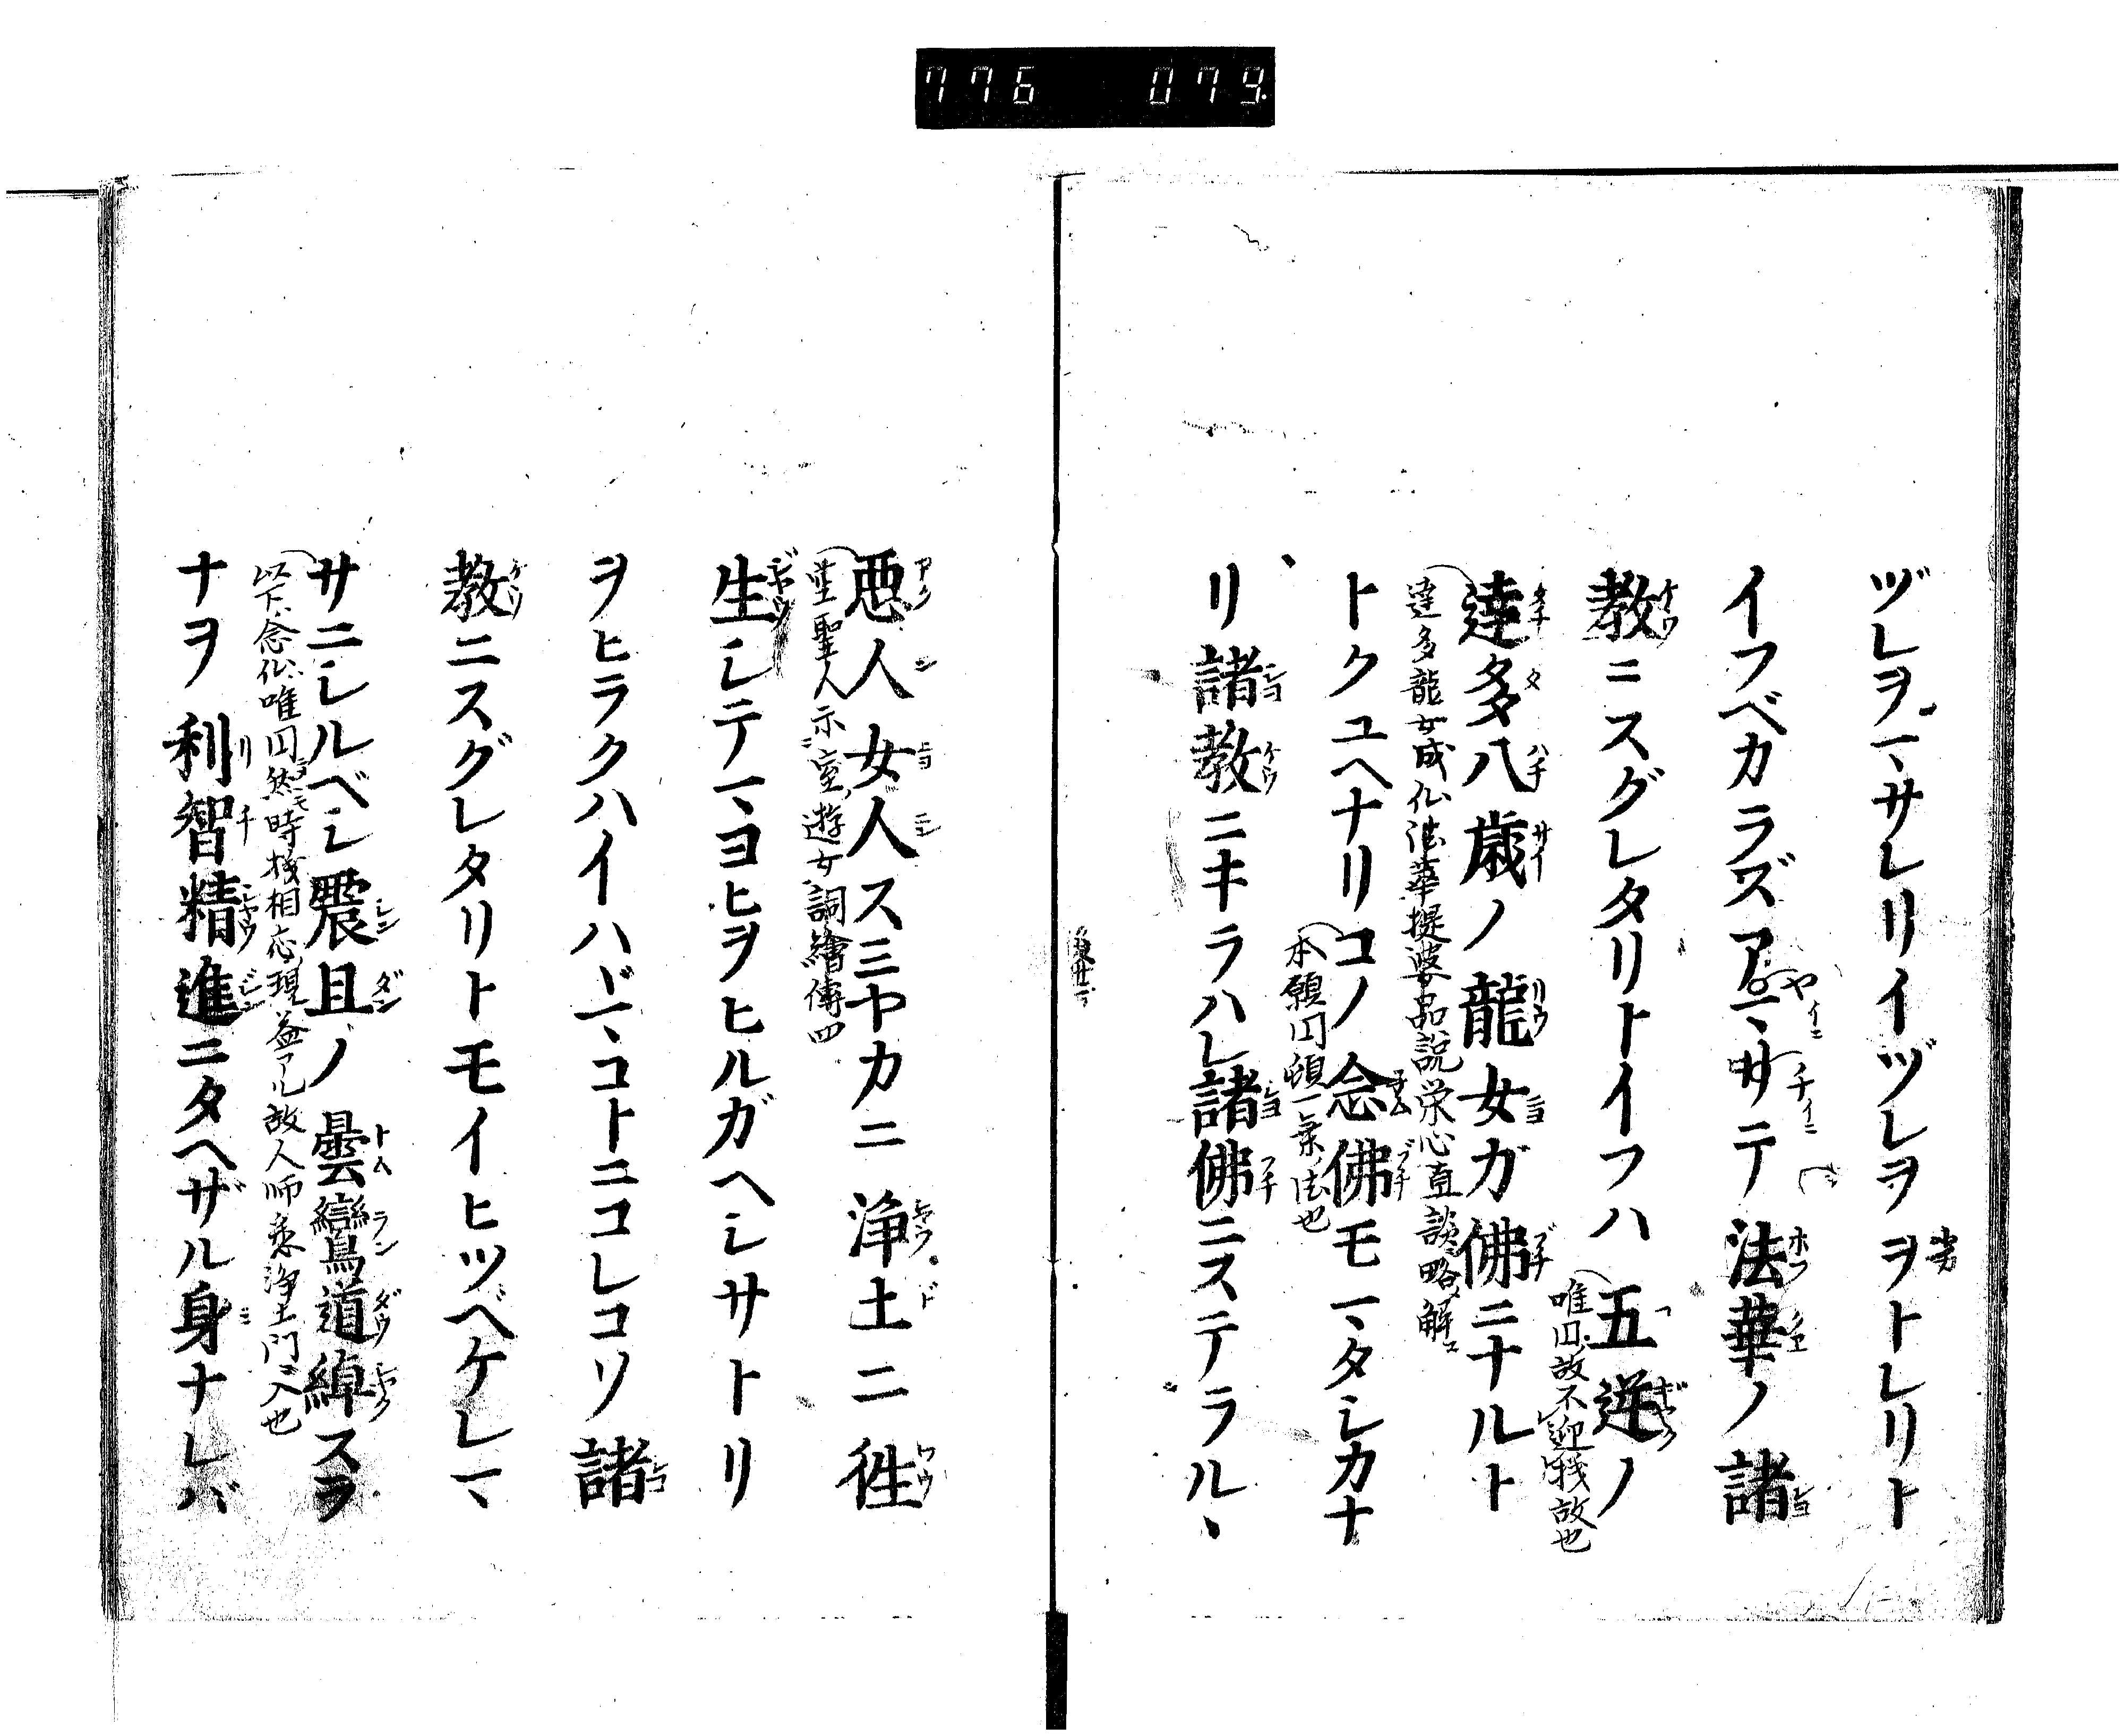 776 079
ヅレヲマサレリイヅレヲヲトレリト
イフベカラズアマサテ法華ノ諸
教ニスグレタリトイフハ五逆ノ
唯円故不迎機故也
達多八歳ノ龍女ガ佛ニナルト
達多龍女成仏法華提婆品説栄心直談略解
トクユヘナリコノ念佛モマタシカナ
本願円頓一乗法也
リ諸教ニキラハレ諸佛ニステラルヽ
悪人女人スミヤカニ浄土ニ往
聖人示室遊女詞繪傳四
生シテマヨヒヲヒルガヘシサトリ
ヲヒラクハイハヾマコトニコレコソ諸
教ニスグレタリトモイヒツベケレマ
サニシルベシ震旦ノ曇鸞道綽スラ
以下念仏唯円然時機相応現益アル故人師棄浄土門入也
ナヲ利智精進ニタヘザル身ナレバ